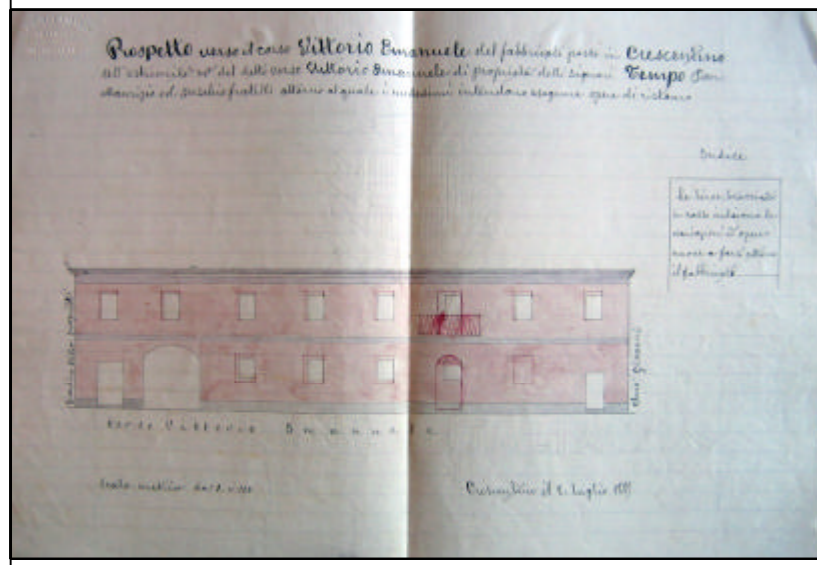 Prospetto verso il corso Vittorio Emanuele del fabbricato posto in Crescentino
del detto corso Vittorio Emanuele di proprietà delli Signori Tempo
Maurizio ed Eusebio fratelli attorno al quale i medesimi intendono eseguire opere di ristauro
Indice
Le linee tracciate
in rosso indicano le
variazioni d'opere
nuove a farsi attorno
il fabbricato
Corso Vittorio Emanuele
Scala metrica
Crescentino il Luglio